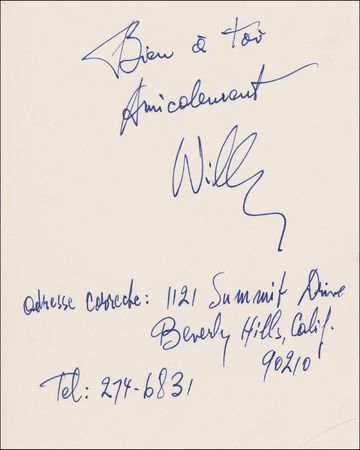 Bien à toi
Amicalement
Willy
adresse correcte: 1121 Summit Drive
Beverly Hills, Calif.
90210
Tel: 274-6831